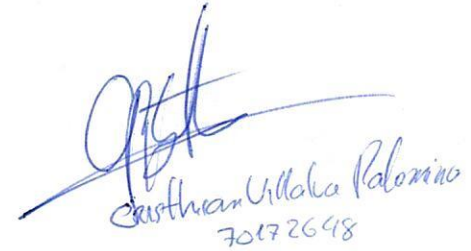 Cristhian Villalva Palomino
70172648